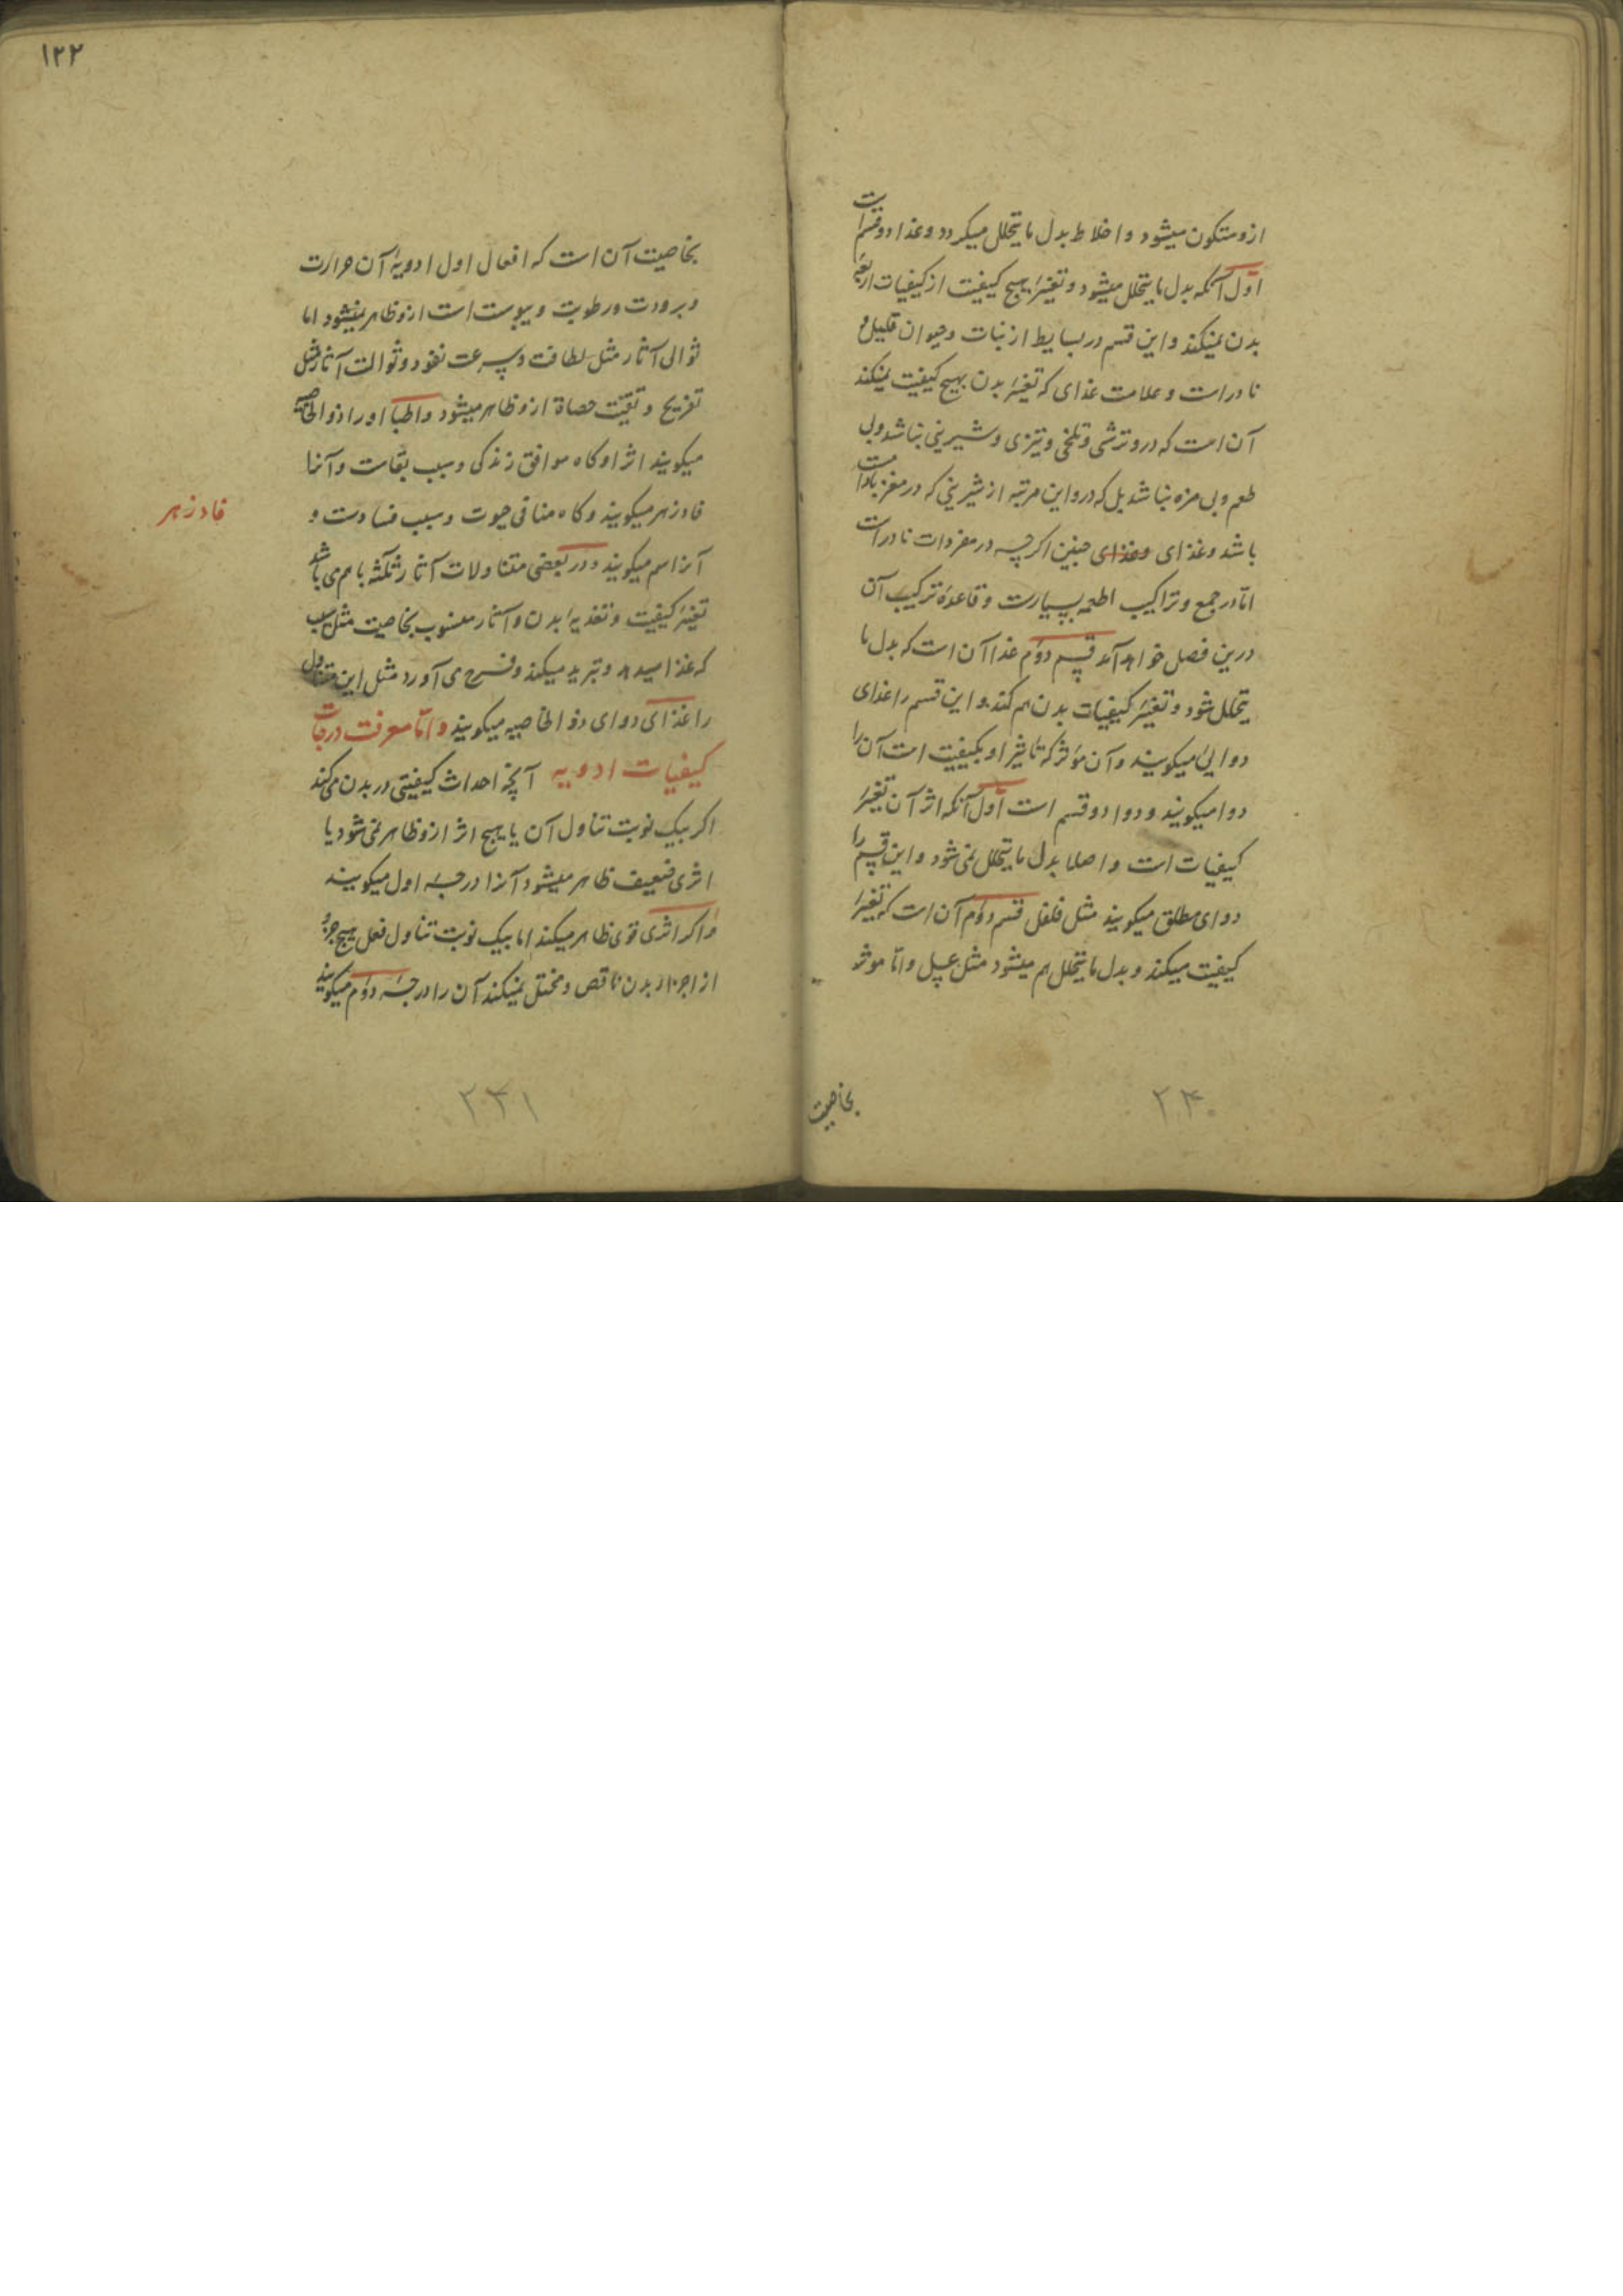 ازو متکون میشود و اخلاط بدل ما یتحلل میکردد و غذا دو قسم است
اوّل آنکه بدل ما یتحلل میشود و تغییر هیچ کیفیت از کیفیات اربعهٔ
بدن نمیکند و این قسم در بسایط از نبات و حیوان قلیل و
نادر است و علامت غذای که تغییر بدن بهیچ کیفیت نمیکند
آن است که درو ترشی و تلخی و تیزی و شیرینی نباشد ولی
طعم و بی مزه نباشد بل که درو این مرتبه از شیرینی که در مغز بادام است
باشد و غذای وغذای چنین اکرچه در مفردات نادر است
امّا در جمع و تراکیب اطعمه بسیارست و قاعدهٔ ترکیب آن
درین فصل خواهد آمد قسم دوّم غذا آن است که بدل ما
یتحلل شود و تغییر کیفیات بدن هم کند و این قسم را غذای
دوایی میکویند و آن مؤثر که تأثیر او بکیفیت است آن را
دوا میکویند و دوا دو قسم است اوّل آنکه اثر آن تغییر
کیفیات است و اصلا بدل ما یتحلل نمی شود و این قسم را
دوای مطلق میکویند مثل فلفل قسم دوّم آن است که تغییر
کیفیت میکند و بدل ما یتحلل هم میشود مثل عسل و امّا موثر
بخاصیت
۲۳۰
۱۲۲
بخاصیت آن است که افعال اول ادویهٔ آن حرارت
و برودت و رطوبت و یبوست است ازو ظاهر نمیشود اما
ثوالی آثار مثل لطافت و سرعت نفود و ثوالث آثار مثل
تفریح و تفتیت حصاة ازو ظاهر میشود و اطبا او را ذو الخاصیه
میکویند اثر او کاه موافق زندکی و سبب بقاست و آنرا
فادزهر میکویند و کاه منافی حیوت و سبب فسادست و
فادزهر
آنرا سم میکویند و در بعضی متناولات آثار ثلثه با هم می باشد
تغییر کیفیت و تغذیهٔ بدن و آثار منسوب بخاصیت مثل سیب
که غذا میدهد و تبرید میکند و فرح می آورد مثل این متناول
را غذای دوای ذو الخاصیه میکویند و امّا معرفت درجات
کیفیات ادویه آنچه احداث کیفیتی در بدن می کند
اکر بیک نوبت تناول آن یا هیچ اثر ازو ظاهر نمی شود یا
اثری ضعیف ظاهر میشود آنرا درجهٔ اول میکویند
و اکر اثری قوی ظاهر میکند اما بیک نوبت تناول فعل هیچ جزؤ
از اجزاء بدن ناقص و مختل نمیکند آن را درجهٔ دوّم میکویند
۲۳۱